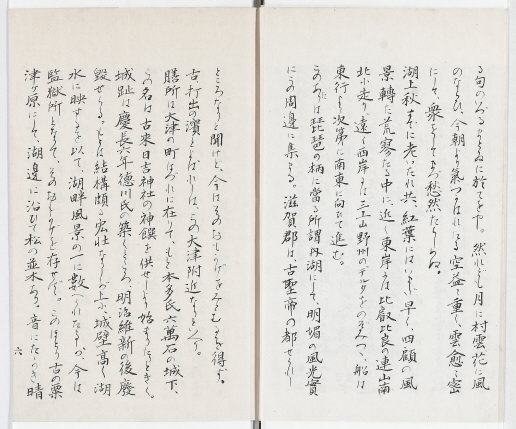 る旬のみるからに於てをや。然れども月に村雲花に風
のならひ、今朝より気づかはれたる空益々重く、雲愈々密
にして、衆をしてまづ愁然たらしめぬ。
湖上秋すでに老いたれ共、紅葉にはいまだ早く、四顧の風
景轉た荒寥たる中に、近く東岸には比叡比良の連山南
北に走り、遠く西岸には三上山野州のデルタをのぞみつゝ、船は
東行より次第に南東に向ひて進む。
このあたりは琵琶の柄に當る所謂内湖にして、明媚の風光實
にこの周邊に集まる。滋賀郡は、古聖帝の都せられし
ところなりと聞けど、今はそのおもかげをみることを得ず。
古、打出の濱とよばれしは、この大津附近なりといふ。
膳所は大津の町はづれに在りて、もと本多氏六萬石の城下、
この名は古来日吉神社の神饌を供せしより始まりしときく。
城趾は慶長六年徳川氏の築くところ、明治維新の後廢
毀せらる。もとは結構頗る宏壮なりし上に、城壁高く湖
水に映ずるを以て、湖畔風景の一に数へられたりしが、今は
監獄所となりて、そのおもかげを存せず。このほとり古の粟
津ヶ原にして、湖邊に沿ひて松の並木あり。音にきこゆ晴
六